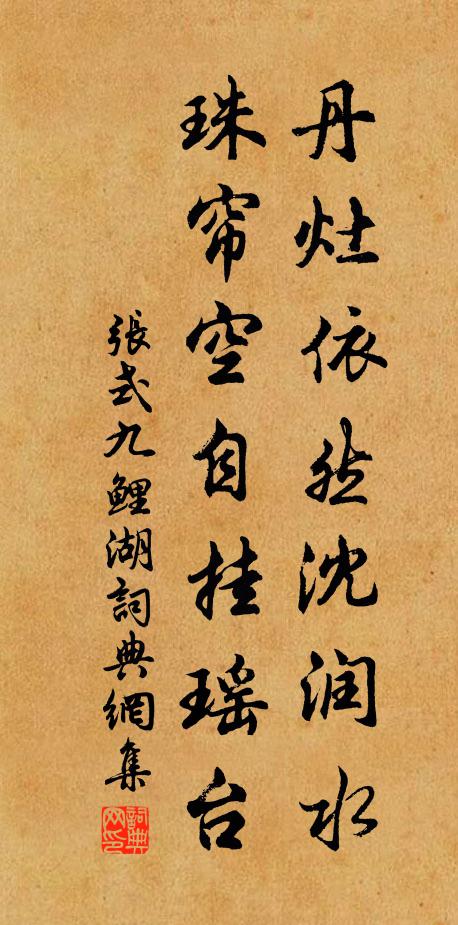 丹灶依然沈润水
珠帘空自挂瑶台
張式九鯉湖詞典網集
詞典网印